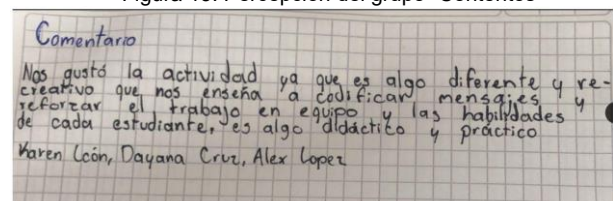 Comentario
Nos gustó la actividad ya que es algo diferente y re-
creativo que nos enseña a codificar mensajes y
reforzar el trabajo en equipo y las habilidades
de cada estudiante, es algo didáctico y práctico
Karen León, Dayana Cruz, Alex Lopez